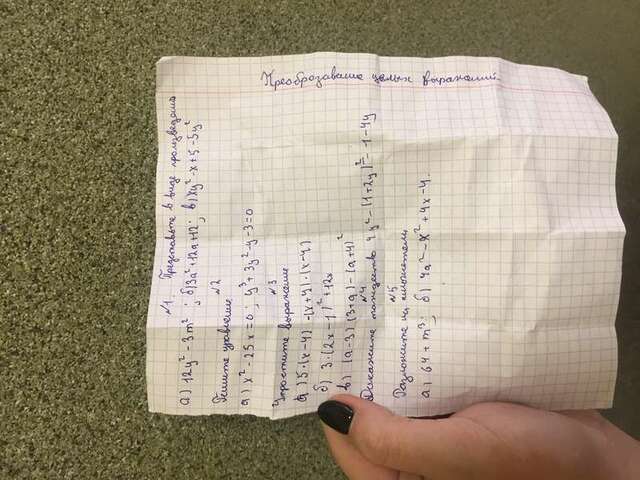 №1. Представьте в виде произведения
а) 12y² - 3m² ; б) 3a² + 12a + 12 ; в) xy² - x + 5 - 5y²
№2
Решите уравнение
а) x² - 25x = 0 ; y³ + 3y² - y - 3 = 0
№3
Упростите выражение
а) 5·(x-4) - (x+4)·(x-4)
б) 3·(2x-1)² + 12x
в) (a-3)(3+a) - (a+4)²
№4
Докажите тождество 4y² - (1+2y)² = -1-4y
№5
Разложите на множители
а) 64 + m³ ; б) 4a² - x² + 4x - 4.
Преобразование целых выражений.